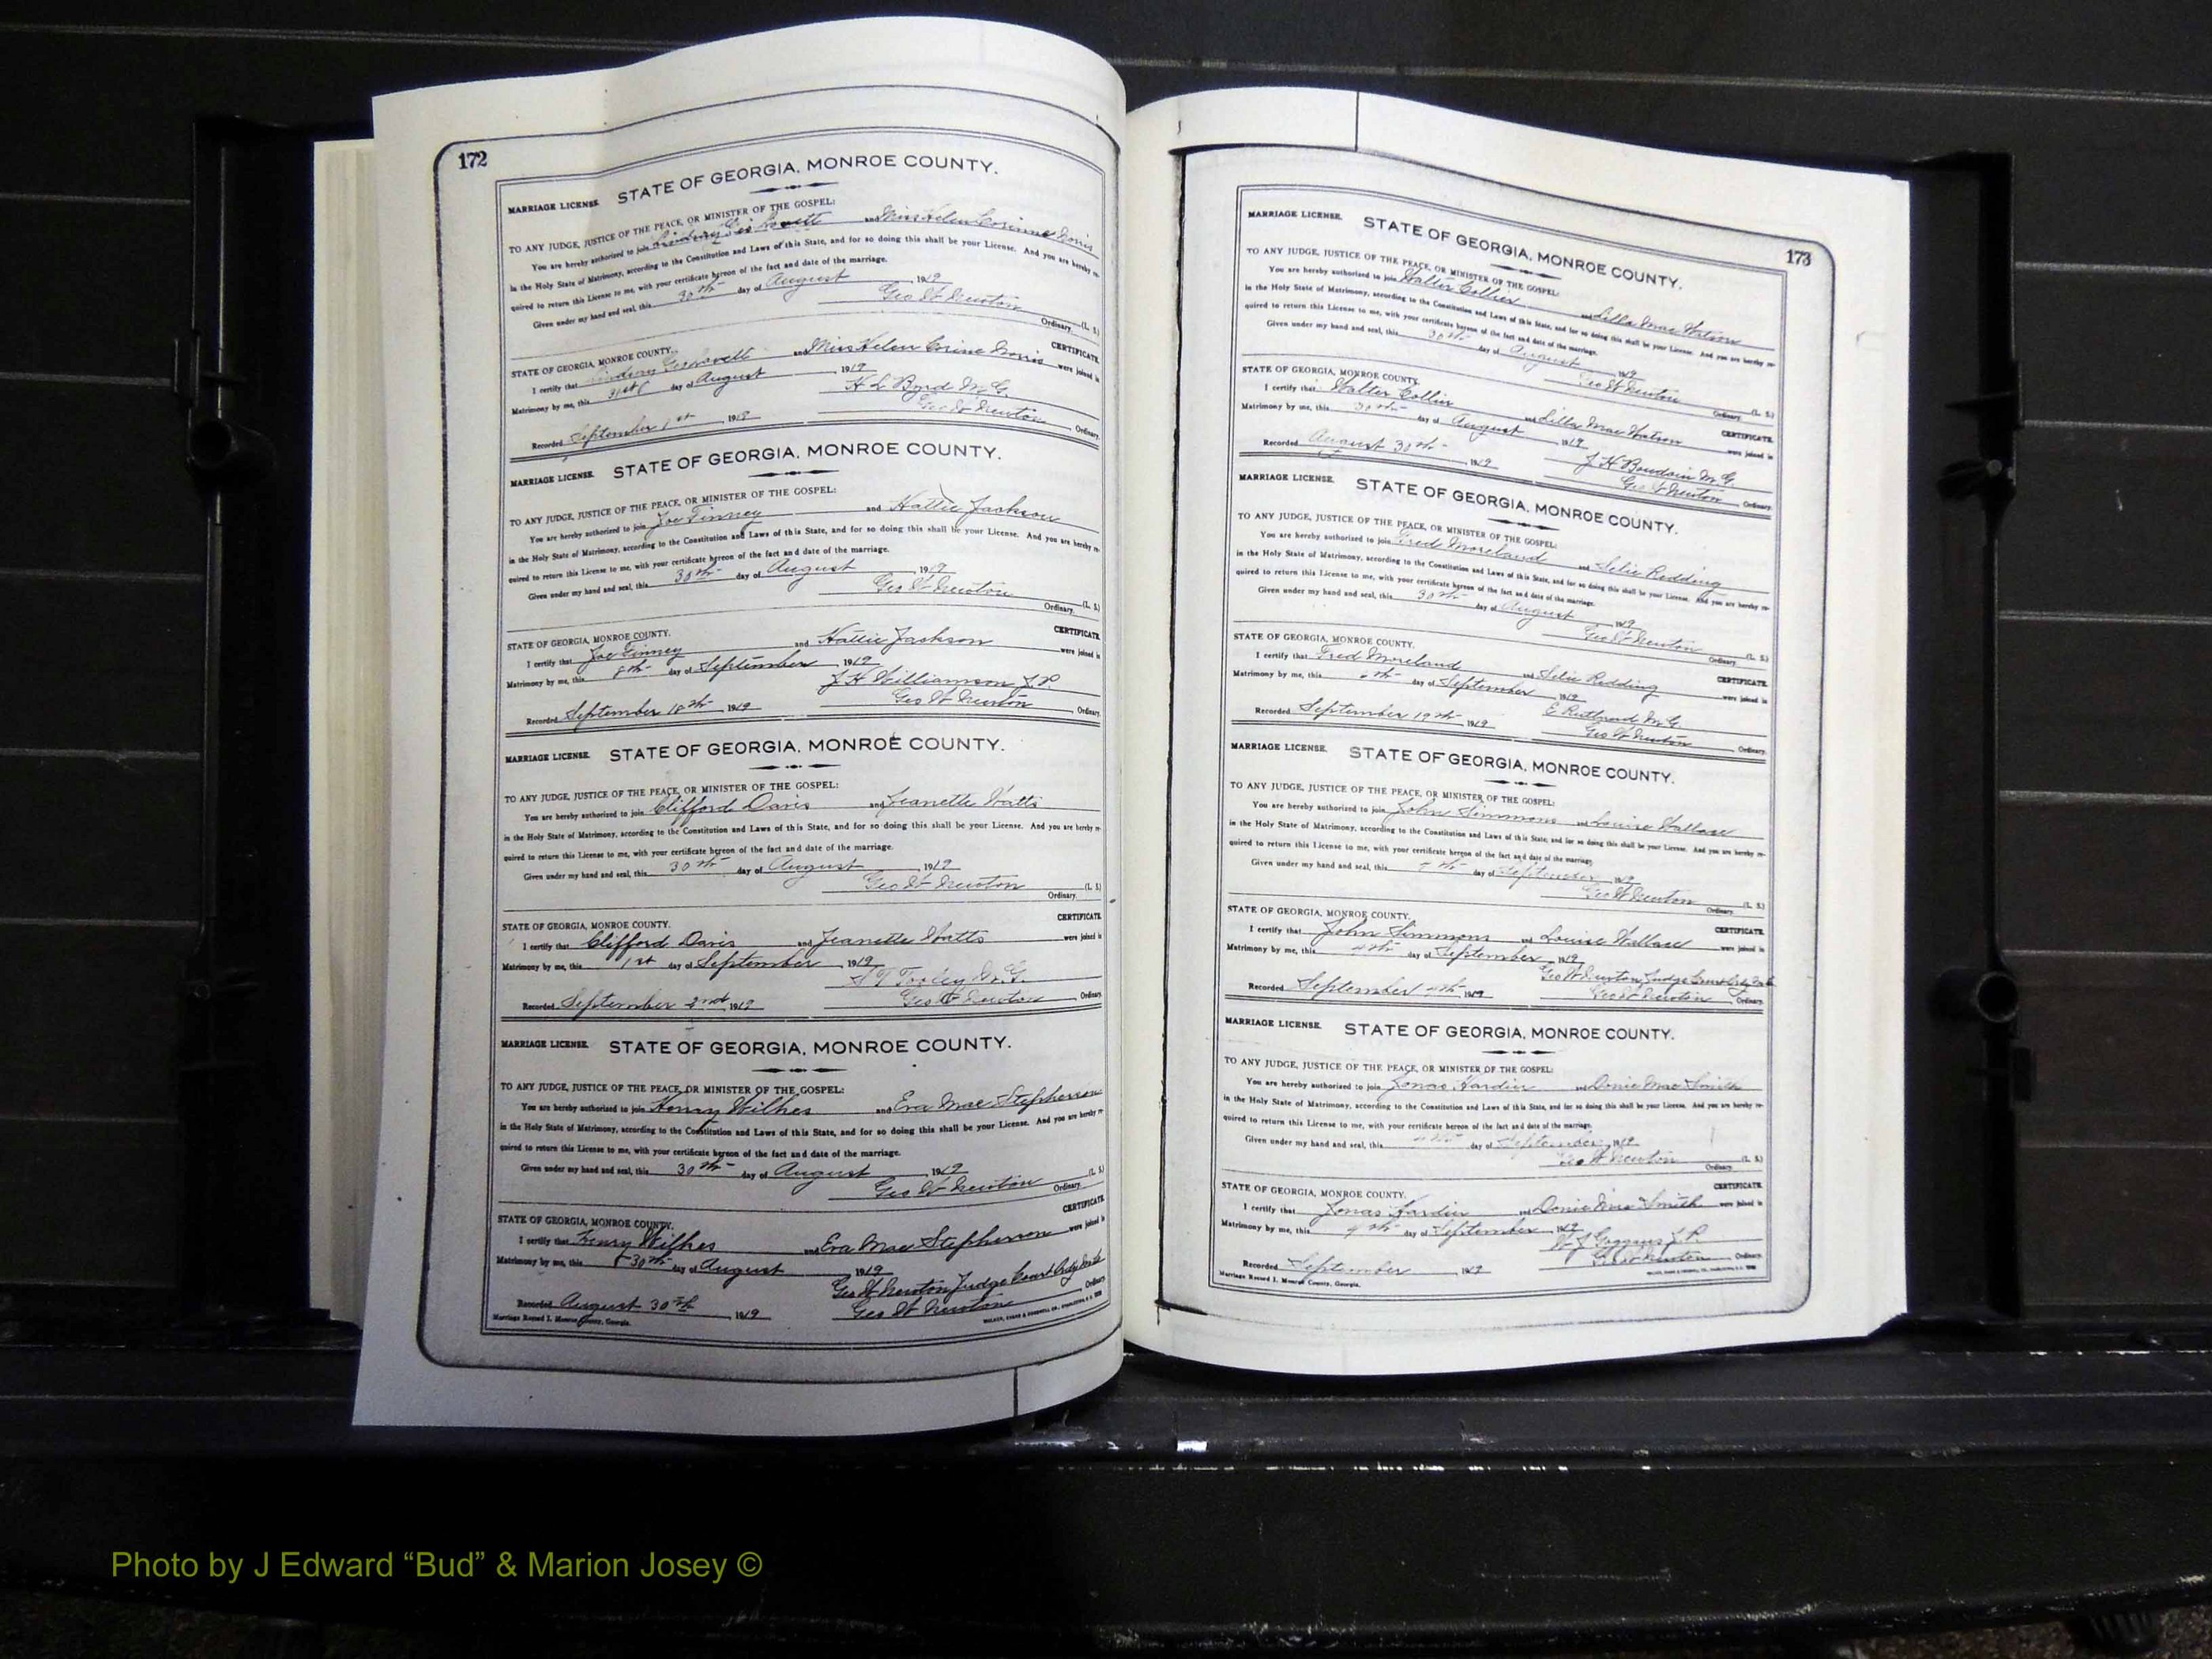 172
STATE OF GEORGIA, MONROE COUNTY.
MARRIAGE LICENSE.
TO ANY JUDGE, JUSTICE OF THE PEACE, OR MINISTER OF THE GOSPEL:
You are hereby authorized to join and Miss Helen Corinne
in the Holy State of Matrimony, according to the Constitution and Laws of this State, and for so doing this shall be your License. And you are hereby re-
quired to return this License to me, with your certificate hereon of the fact and date of the marriage.
Given under my hand and seal, this 30th day of August, 1919
Geo W Newton (L. S.)
Ordinary.
STATE OF GEORGIA, MONROE COUNTY. CERTIFICATE.
I certify that and Miss Helen Corine were joined in
Matrimony by me, this 31st day of August, 1919
H L Byrd M.G.
Recorded September 1st, 1919 Geo W Newton, Ordinary.
MARRIAGE LICENSE. STATE OF GEORGIA, MONROE COUNTY.
TO ANY JUDGE, JUSTICE OF THE PEACE, OR MINISTER OF THE GOSPEL:
You are hereby authorized to join Joe Finney and Hattie Jackson
in the Holy State of Matrimony, according to the Constitution and Laws of this State, and for so doing this shall be your License. And you are hereby re-
quired to return this License to me, with your certificate hereon of the fact and date of the marriage.
Given under my hand and seal, this 30th day of August, 1919
Geo W Newton (L. S.)
Ordinary.
STATE OF GEORGIA, MONROE COUNTY. CERTIFICATE.
I certify that Joe Finney and Hattie Jackson were joined in
Matrimony by me, this day of September, 1919
J H Williamson J.P.
Recorded September 18th, 1919 Geo W Newton, Ordinary.
MARRIAGE LICENSE. STATE OF GEORGIA, MONROE COUNTY.
TO ANY JUDGE, JUSTICE OF THE PEACE, OR MINISTER OF THE GOSPEL:
You are hereby authorized to join Clifford Davis and Jeanette Watts
in the Holy State of Matrimony, according to the Constitution and Laws of this State, and for so doing this shall be your License. And you are hereby re-
quired to return this License to me, with your certificate hereon of the fact and date of the marriage.
Given under my hand and seal, this 30th day of August, 1919
Geo W Newton (L. S.)
Ordinary.
STATE OF GEORGIA, MONROE COUNTY. CERTIFICATE.
I certify that Clifford Davis and Jeanette Watts were joined in
Matrimony by me, this 1st day of September, 1919
M.G.
Recorded September 2nd, 1919 Geo W Newton, Ordinary.
MARRIAGE LICENSE. STATE OF GEORGIA, MONROE COUNTY.
TO ANY JUDGE, JUSTICE OF THE PEACE, OR MINISTER OF THE GOSPEL:
You are hereby authorized to join Henry Wilkes and Eva Mae Stephenson
in the Holy State of Matrimony, according to the Constitution and Laws of this State, and for so doing this shall be your License. And you are hereby re-
quired to return this License to me, with your certificate hereon of the fact and date of the marriage.
Given under my hand and seal, this 30th day of August, 1919
Geo W Newton (L. S.)
Ordinary.
STATE OF GEORGIA, MONROE COUNTY. CERTIFICATE.
I certify that Henry Wilkes and Eva Mae Stephenson were joined in
Matrimony by me, this 30th day of August, 1919
Geo W Newton Judge Court
Recorded August 30th, 1919 Geo W Newton, Ordinary.
Marriage Record I. Monroe County, Georgia.
173
MARRIAGE LICENSE. STATE OF GEORGIA, MONROE COUNTY.
TO ANY JUDGE, JUSTICE OF THE PEACE, OR MINISTER OF THE GOSPEL:
You are hereby authorized to join Walter Collier and Lilla Mae Watson
in the Holy State of Matrimony, according to the Constitution and Laws of this State, and for so doing this shall be your License. And you are hereby re-
quired to return this License to me, with your certificate hereon of the fact and date of the marriage.
Given under my hand and seal, this 30th day of August, 1919
Geo W Newton (L. S.)
Ordinary.
STATE OF GEORGIA, MONROE COUNTY. CERTIFICATE.
I certify that Walter Collier and Lilla Mae Watson were joined in
Matrimony by me, this 30th day of August, 1919
J H M.G.
Recorded August 30th, 1919 Geo W Newton, Ordinary.
MARRIAGE LICENSE. STATE OF GEORGIA, MONROE COUNTY.
TO ANY JUDGE, JUSTICE OF THE PEACE, OR MINISTER OF THE GOSPEL:
You are hereby authorized to join Fred Moreland and Redding
in the Holy State of Matrimony, according to the Constitution and Laws of this State, and for so doing this shall be your License. And you are hereby re-
quired to return this License to me, with your certificate hereon of the fact and date of the marriage.
Given under my hand and seal, this 30th day of August, 1919
Geo W Newton (L. S.)
Ordinary.
STATE OF GEORGIA, MONROE COUNTY. CERTIFICATE.
I certify that Fred Moreland and Redding were joined in
Matrimony by me, this day of September, 1919
M.G.
Recorded September 19th, 1919 Geo W Newton, Ordinary.
MARRIAGE LICENSE. STATE OF GEORGIA, MONROE COUNTY.
TO ANY JUDGE, JUSTICE OF THE PEACE, OR MINISTER OF THE GOSPEL:
You are hereby authorized to join John Simmons and Louise Wallace
in the Holy State of Matrimony, according to the Constitution and Laws of this State, and for so doing this shall be your License. And you are hereby re-
quired to return this License to me, with your certificate hereon of the fact and date of the marriage.
Given under my hand and seal, this day of September, 1919
Geo W Newton (L. S.)
Ordinary.
STATE OF GEORGIA, MONROE COUNTY. CERTIFICATE.
I certify that John Simmons and Louise Wallace were joined in
Matrimony by me, this 4th day of September, 1919
Geo W Newton Judge Court
Recorded September 4th, 1919 Geo W Newton, Ordinary.
MARRIAGE LICENSE. STATE OF GEORGIA, MONROE COUNTY.
TO ANY JUDGE, JUSTICE OF THE PEACE, OR MINISTER OF THE GOSPEL:
You are hereby authorized to join Jonas Hardin and Donie Mae Smith
in the Holy State of Matrimony, according to the Constitution and Laws of this State, and for so doing this shall be your License. And you are hereby re-
quired to return this License to me, with your certificate hereon of the fact and date of the marriage.
Given under my hand and seal, this day of September, 1919
Geo W Newton (L. S.)
Ordinary.
STATE OF GEORGIA, MONROE COUNTY. CERTIFICATE.
I certify that Jonas Hardin and Donie Mae Smith were joined in
Matrimony by me, this day of September, 1919
Goggins J.P.
Recorded September, 1919 Geo W Newton, Ordinary.
Marriage Record I. Monroe County, Georgia.
Photo by J Edward “Bud” & Marion Josey ©